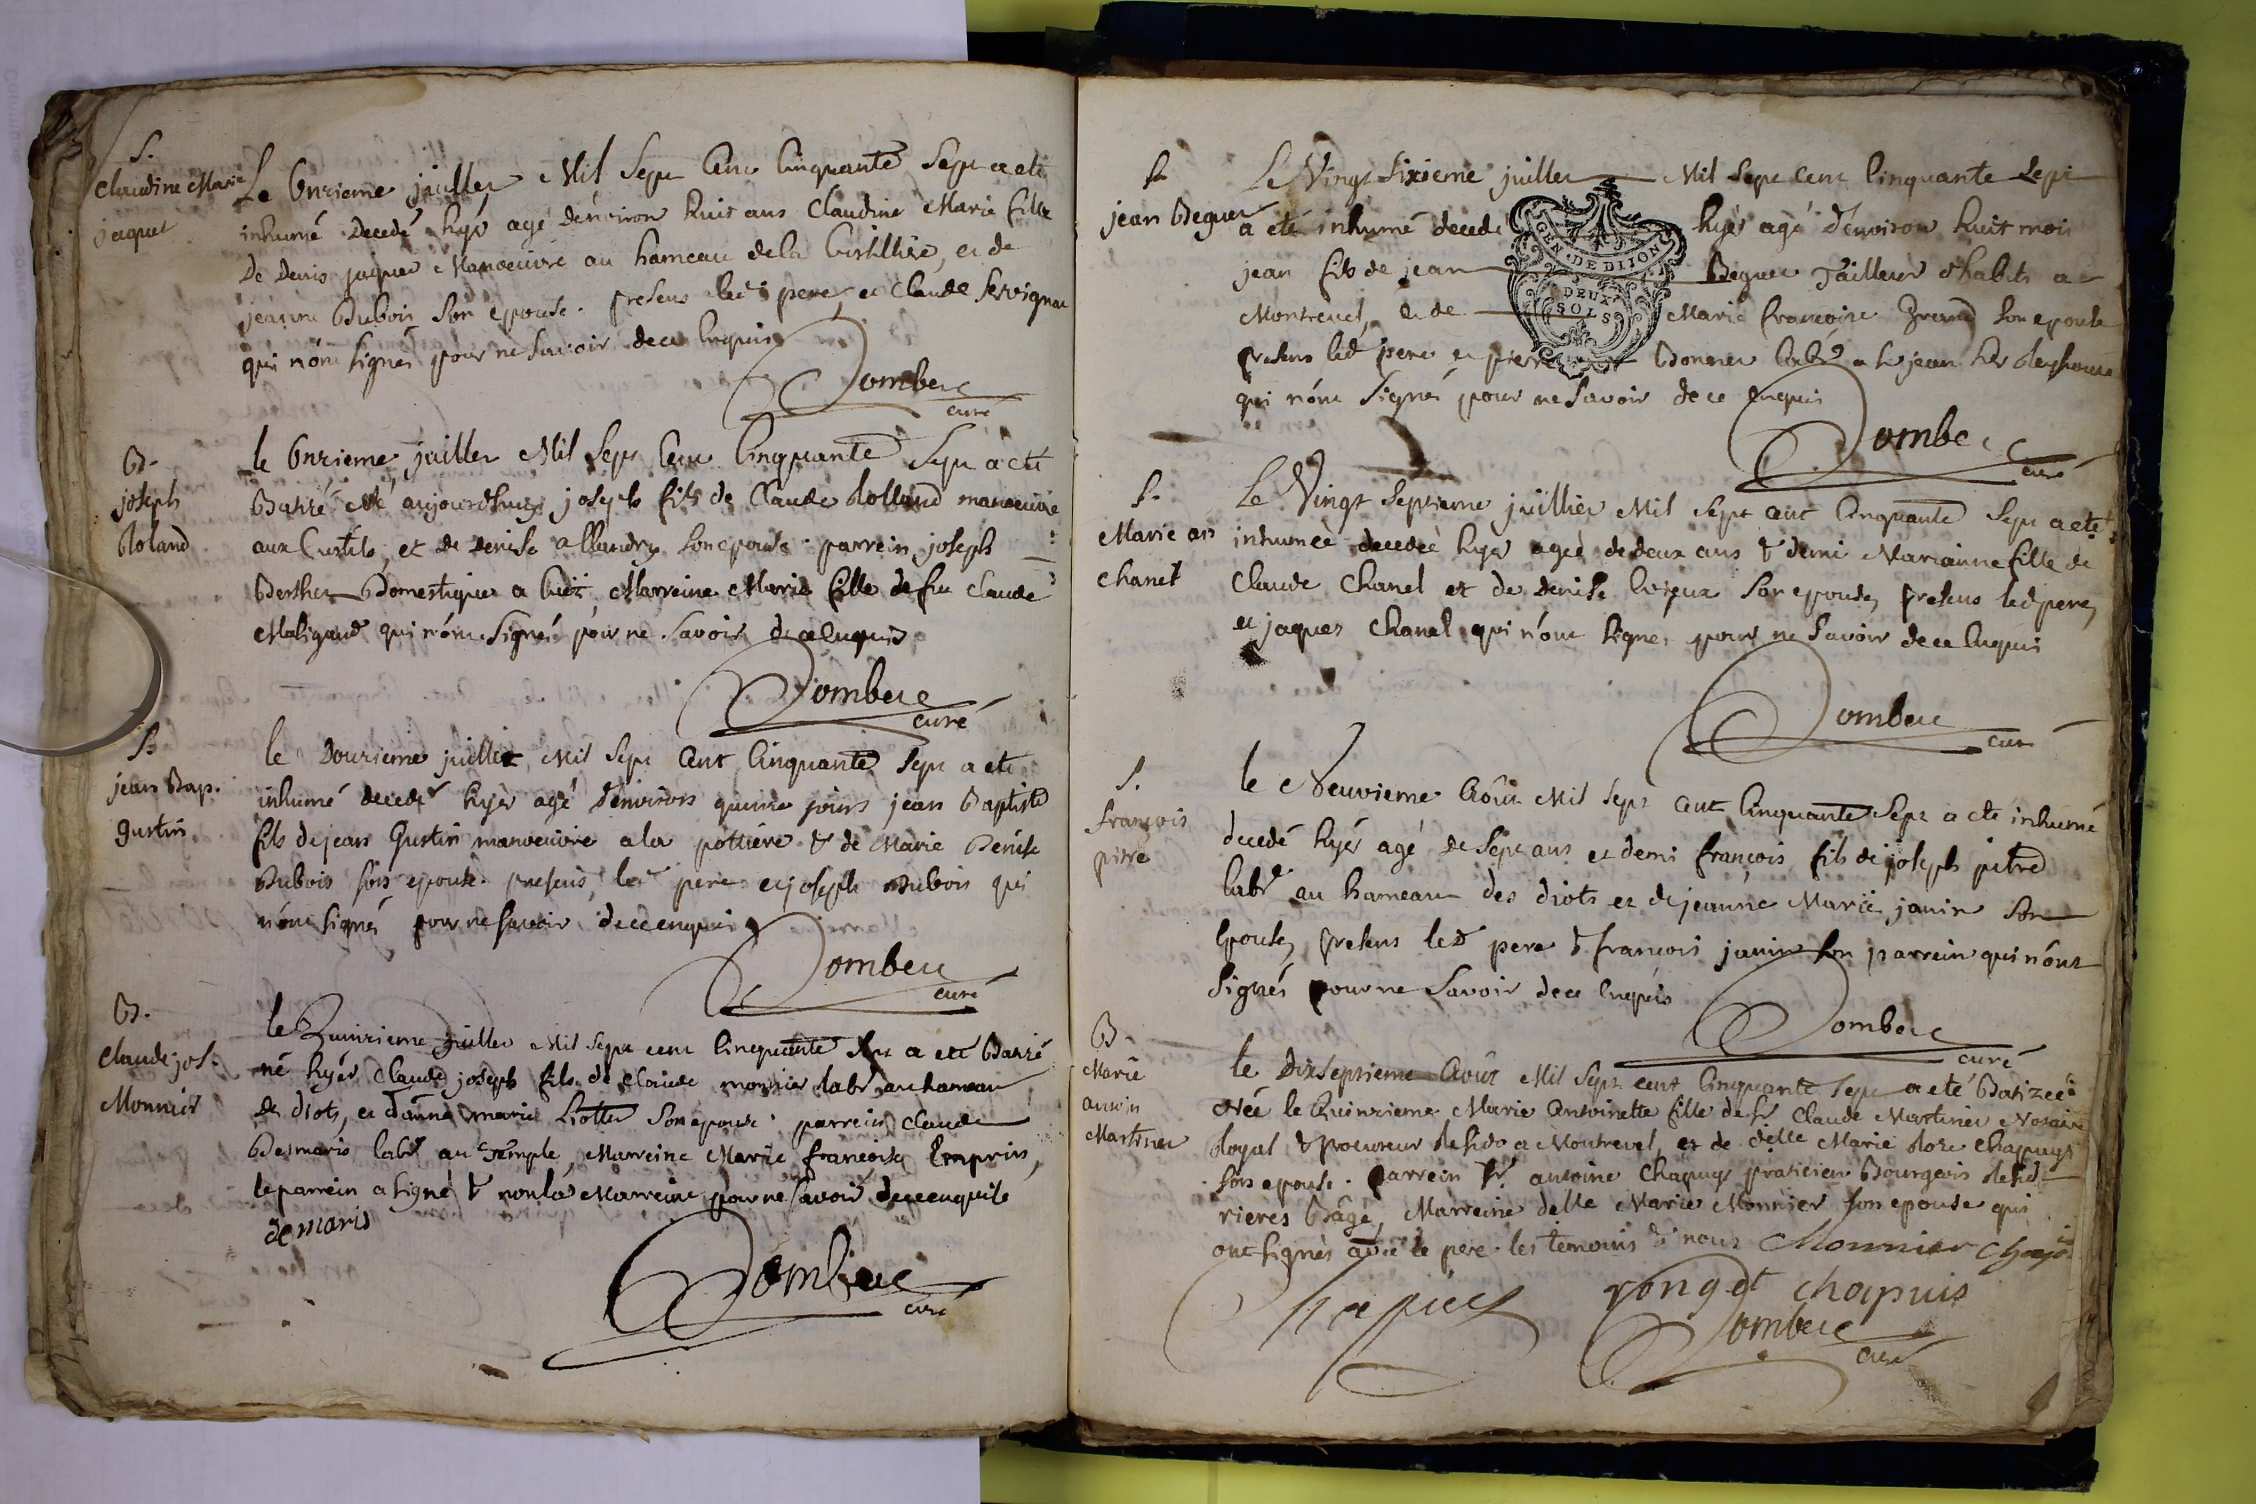 S.
Claudine Marie
jaquet
Le Onzieme juillet Mil Sept Cent Cinquante Sept a eté
inhumé decedé hyér agé dénviron huit ans Claudine Marie fille
De Denis jaquet Manoeuvre au hameau de la, et de
jeanne Dubois Son epouse. presens led pere, et Claude Servignat
qui nónt signés pour ne Savoir de ce Enquis
Dombeu
curé
B.
joseph
Roland
le Onzieme juillet Mil Sept Cent Cinquante Sept a eté
Batizé né aujourdhuy joseph fils de Claude Rolland manoeuvre
aux, et de Denise allandry Son epouse. parrein joseph
Berthet Domestique a, Marreine Marie fille de feu Claude
Maligand qui nónt Signés pour ne Savoir de ce Enquis
Dombeu
curé
S.
jean Bap.
gustin
le Douzieme juillet Mil Sept Cent Cinquante Sept a eté
inhumé decedé hyér agé dénvirons quinze jours jean Baptiste
fils de jean Gustin manoeuvre a la pottiére & de Marie Denise
Dubois son epouse. presens led pere et joseph Dubois qui
nónt signés pour ne Savoir de ce enquis
Dombeu
curé
B.
Claude jos.
Monnier
le Quinzieme juillet Mil Sept cent Cinquante Sept a eté Batizé
né hyér Claude joseph fils de Claude monnier labr au hameau
des diots, et dánne marie Son epouse. parrein Claude
Desmaris labr au Temple, Marreine Marie francoise Emprin,
le parrein a signé & non la Marreine pour ne Savoir de ce enquise
demaris
Dombeu
curé
S.
jean Beguet
Le Vingt Sixieme juillet Mil Sept Cent Cinquante Sept
a eté inhumé decedé hyér agé dénviron huit mois
jean fils de jean Beguet Tailleur dhabits a
Montrevel, et de Marie francoise Son epouse
presens led pere et pierre Bonnet labr a St jean
qui nónt Signés pour ne Savoir de ce enquis
Dombeu
curé
GEN. DE DIJON
DEUX
SOLS
S.
Marie an
Chanel
Le Vingt Septieme juillier Mil Sept cent Cinquante Sept a eté
inhumeé decedeé hyér ageé de deux ans & demi Marianne fille de
Claude Chanel et de Denise Son epouse, presens led pere,
et jaques Chanel qui nónt signés pour ne Savoir de ce Enquis
Dombeu
curé
S.
françois
pitre
le Neuvieme Août Mil Sept Cent Cinquante Sept a eté inhumé
decedé hyér agé de Sept ans et demi françois fils de joseph pitre
labr au hameau des diots et de jeanne Marie janin Son
Epouse, presens led pere & francois janin Son parrein qui nónt
Signés pour ne Savoir de ce Enquis
Dombeu
curé
B.
Marie
antoin
Martinet
le Dixseptieme Août Mil Sept cent Cinquante Sept a eté Batizeé
Neé le Quinzieme Marie Antoinette fille de Sr Claude Martinet Notaire
Royal & procureur a Montrevel, et de delle Marie Roze Chapuys
son epouse. parrein Sr. antoine Chapuys praticien Bourgeois
rieres Bâgé, Marreine delle Marie Monnier son epouse qui
ont signés avec le pere les temoins & nous Monnier Chapuis
Chapuis ronget chapuis
Dombeu
curé